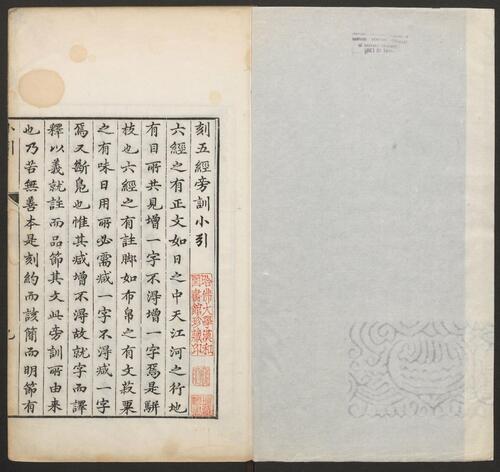 刻五經旁訓小引
六經之有正文如日之中天江河之行地
有目所共見增一字不得增一字焉是駢
枝也六經之有註脚如布帛之有文菽粟
之有味日用所必需減一字不得減一字
焉又斷鳧也惟其減增不得故就字而譯
釋以義就註而品節其文此旁訓所由来
也乃若無善本是刻約而該簡而明節有
哈佛大學漢和
圖書館珍藏印